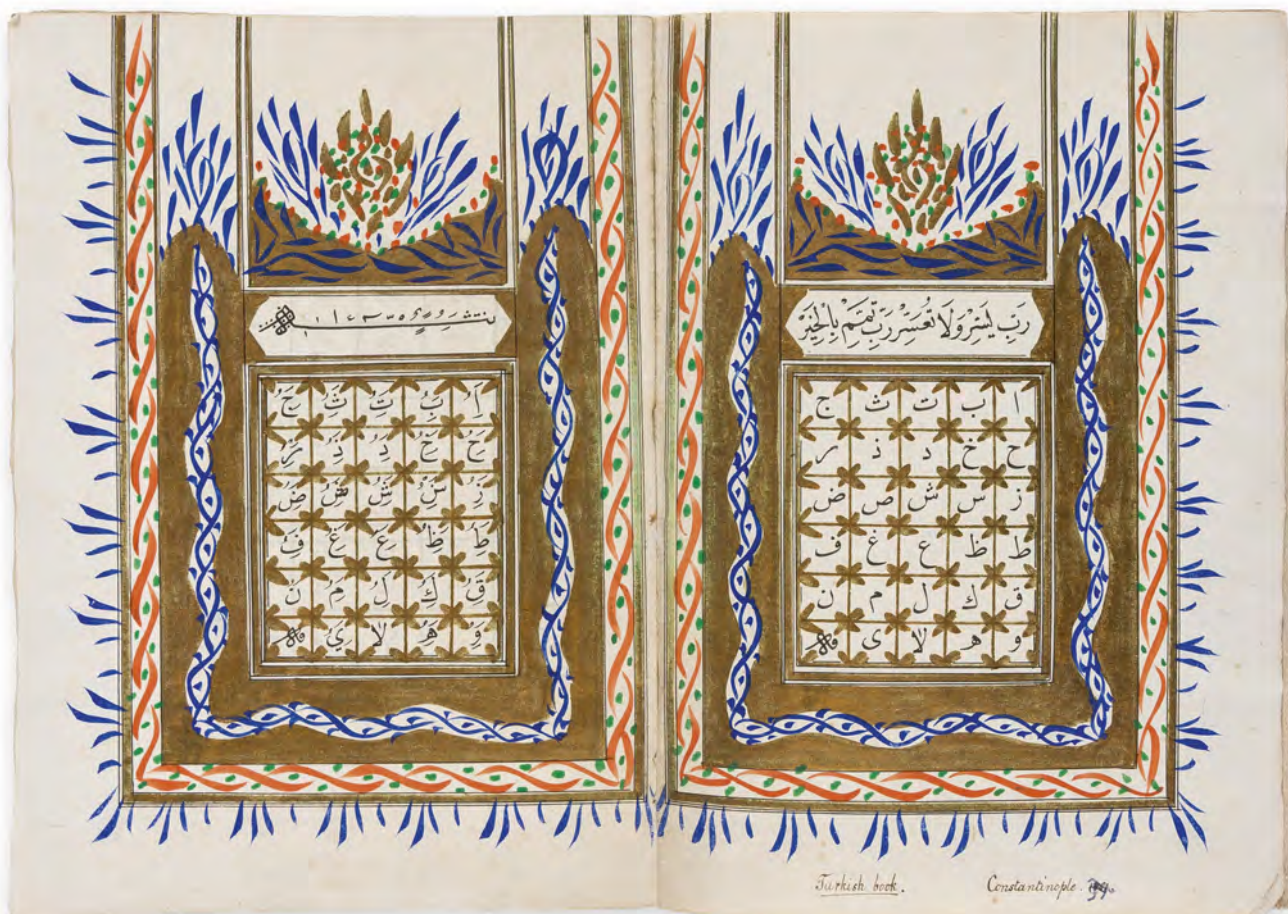 رَبِّ يَسِّرْ وَلَا تُعَسِّرْ رَبِّ تَمِّمْ بِالْخَيْرِ
ا ب ت ث ج
ح خ د ذ ر
ز س ش ص ض
ط ظ ع غ ف
ق ك ل م ن
و ه لا ى
ا ب ت ث ج
ح خ د ذ ر
ز س ش ص ض
ط ظ ع غ ف
ق ك ل م ن
و ه لا ى
Turkish book. Constantinople.